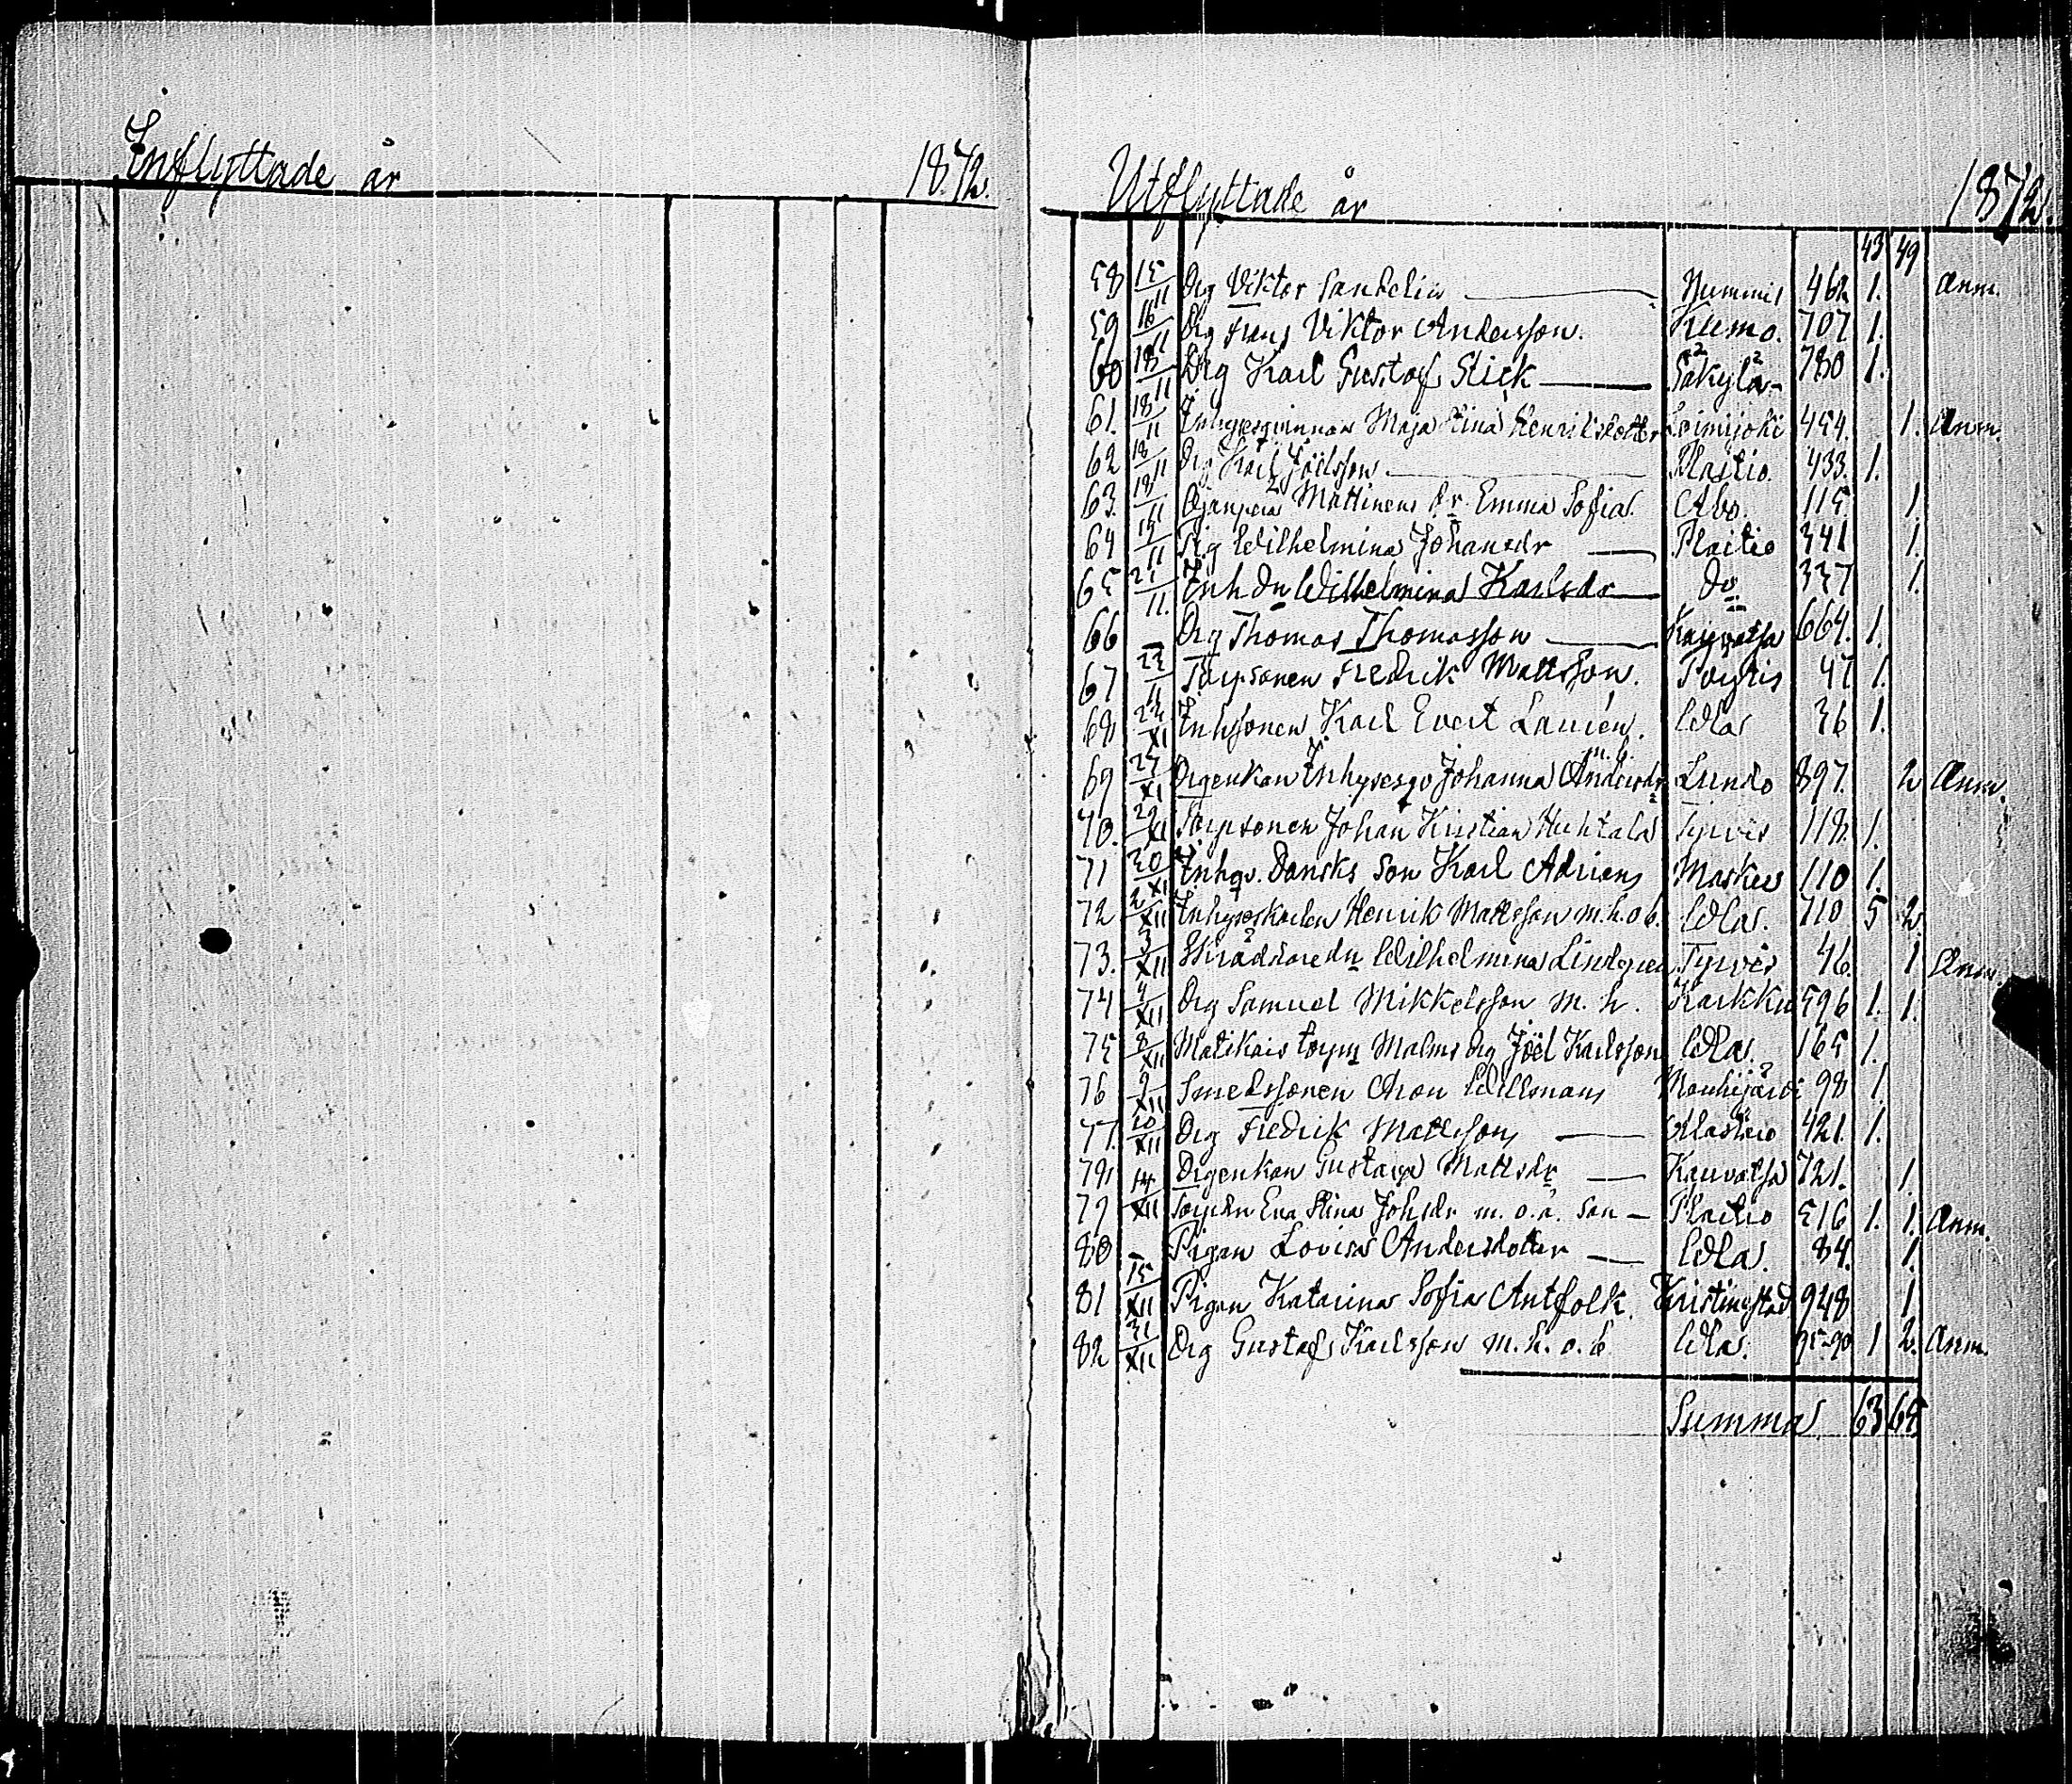 Inflyttade år 1872.
Utflyttade år 1872.
43 49
58 15/11 Drg Viktor Sandelin — Nummis 462 1. Anm.
59 16/11 Drg Frans Viktor Andersson. Kumo. 707 1.
60 18/11 Drg Karl Gustaf Stick — Säkylä 780 1.
61. 18/11 Inhysesqvinnan Maja Stina Henriksdotter Loimijoki 454. 1. Anm.
62 18/11 Drg Karl Joelsson — 433. 1.
63. 18/11 Mattinens dr. Emma Sofia Åbo. 115 1.
64 Pig Wilhelmina Johansdr — 341 1.
65 11. Inh dn Wilhelmina Karlsdr — Do 337 1.
66 – Drg Thomas Thomasson — Kauvatsa 664. 1.
67 22/11 Torpsonen Fredrik Mattsson. Pöytis 47 1.
68 XI Inhsonen Karl Evert Laurén. Ulla 36 1.
m. b.
69 27/XI Drgenkan Inhysesqv Johanna Andersdr Lundo 897. 2 Anm.
70. 29/XI Torpsonen Johan Kristian Huhtala Tyrvis 118. 1.
71 30/XI Inhqv. Dansks son Karl Adrian Maskus 110 1.
72 2/XII Inhyseskarlen Henrik Mattsson m.h.o b. Ulla. 710 5 2.
73. 3/XII Skräddaredn Wilhelmina Lindgren Tyrvis 46. 1 Anm.
74 4/XII Drg Samuel Mikkelsson m. h. Karkku 596 1. 1.
75 8/XII torpm Malms drg Joël Karlsson Ulla. 165 1.
76 9/XII Smedssonen Aron Willsman Mouhijärvi 98 1.
77. 10/XII Drg Fredrik Mattsson — 421. 1.
78 14/XII Drgenkan Gustava Mattsdr — Kauvatsa 721. 1.
79 Torpdn Eva Stina Johsdr m. o.ä. son — 516 1. 1. Anm.
80 – Pigan Lovisa Andersdotter — Ulla. 84. 1.
81 15/XII Pigan Katarina Sofia Antfolk. Kristinestad 948 1
82 31/XII Drg Gustaf Karlsson m.h.o.b Ulla. 95.90 1 2. Anm.
Summa 63 65